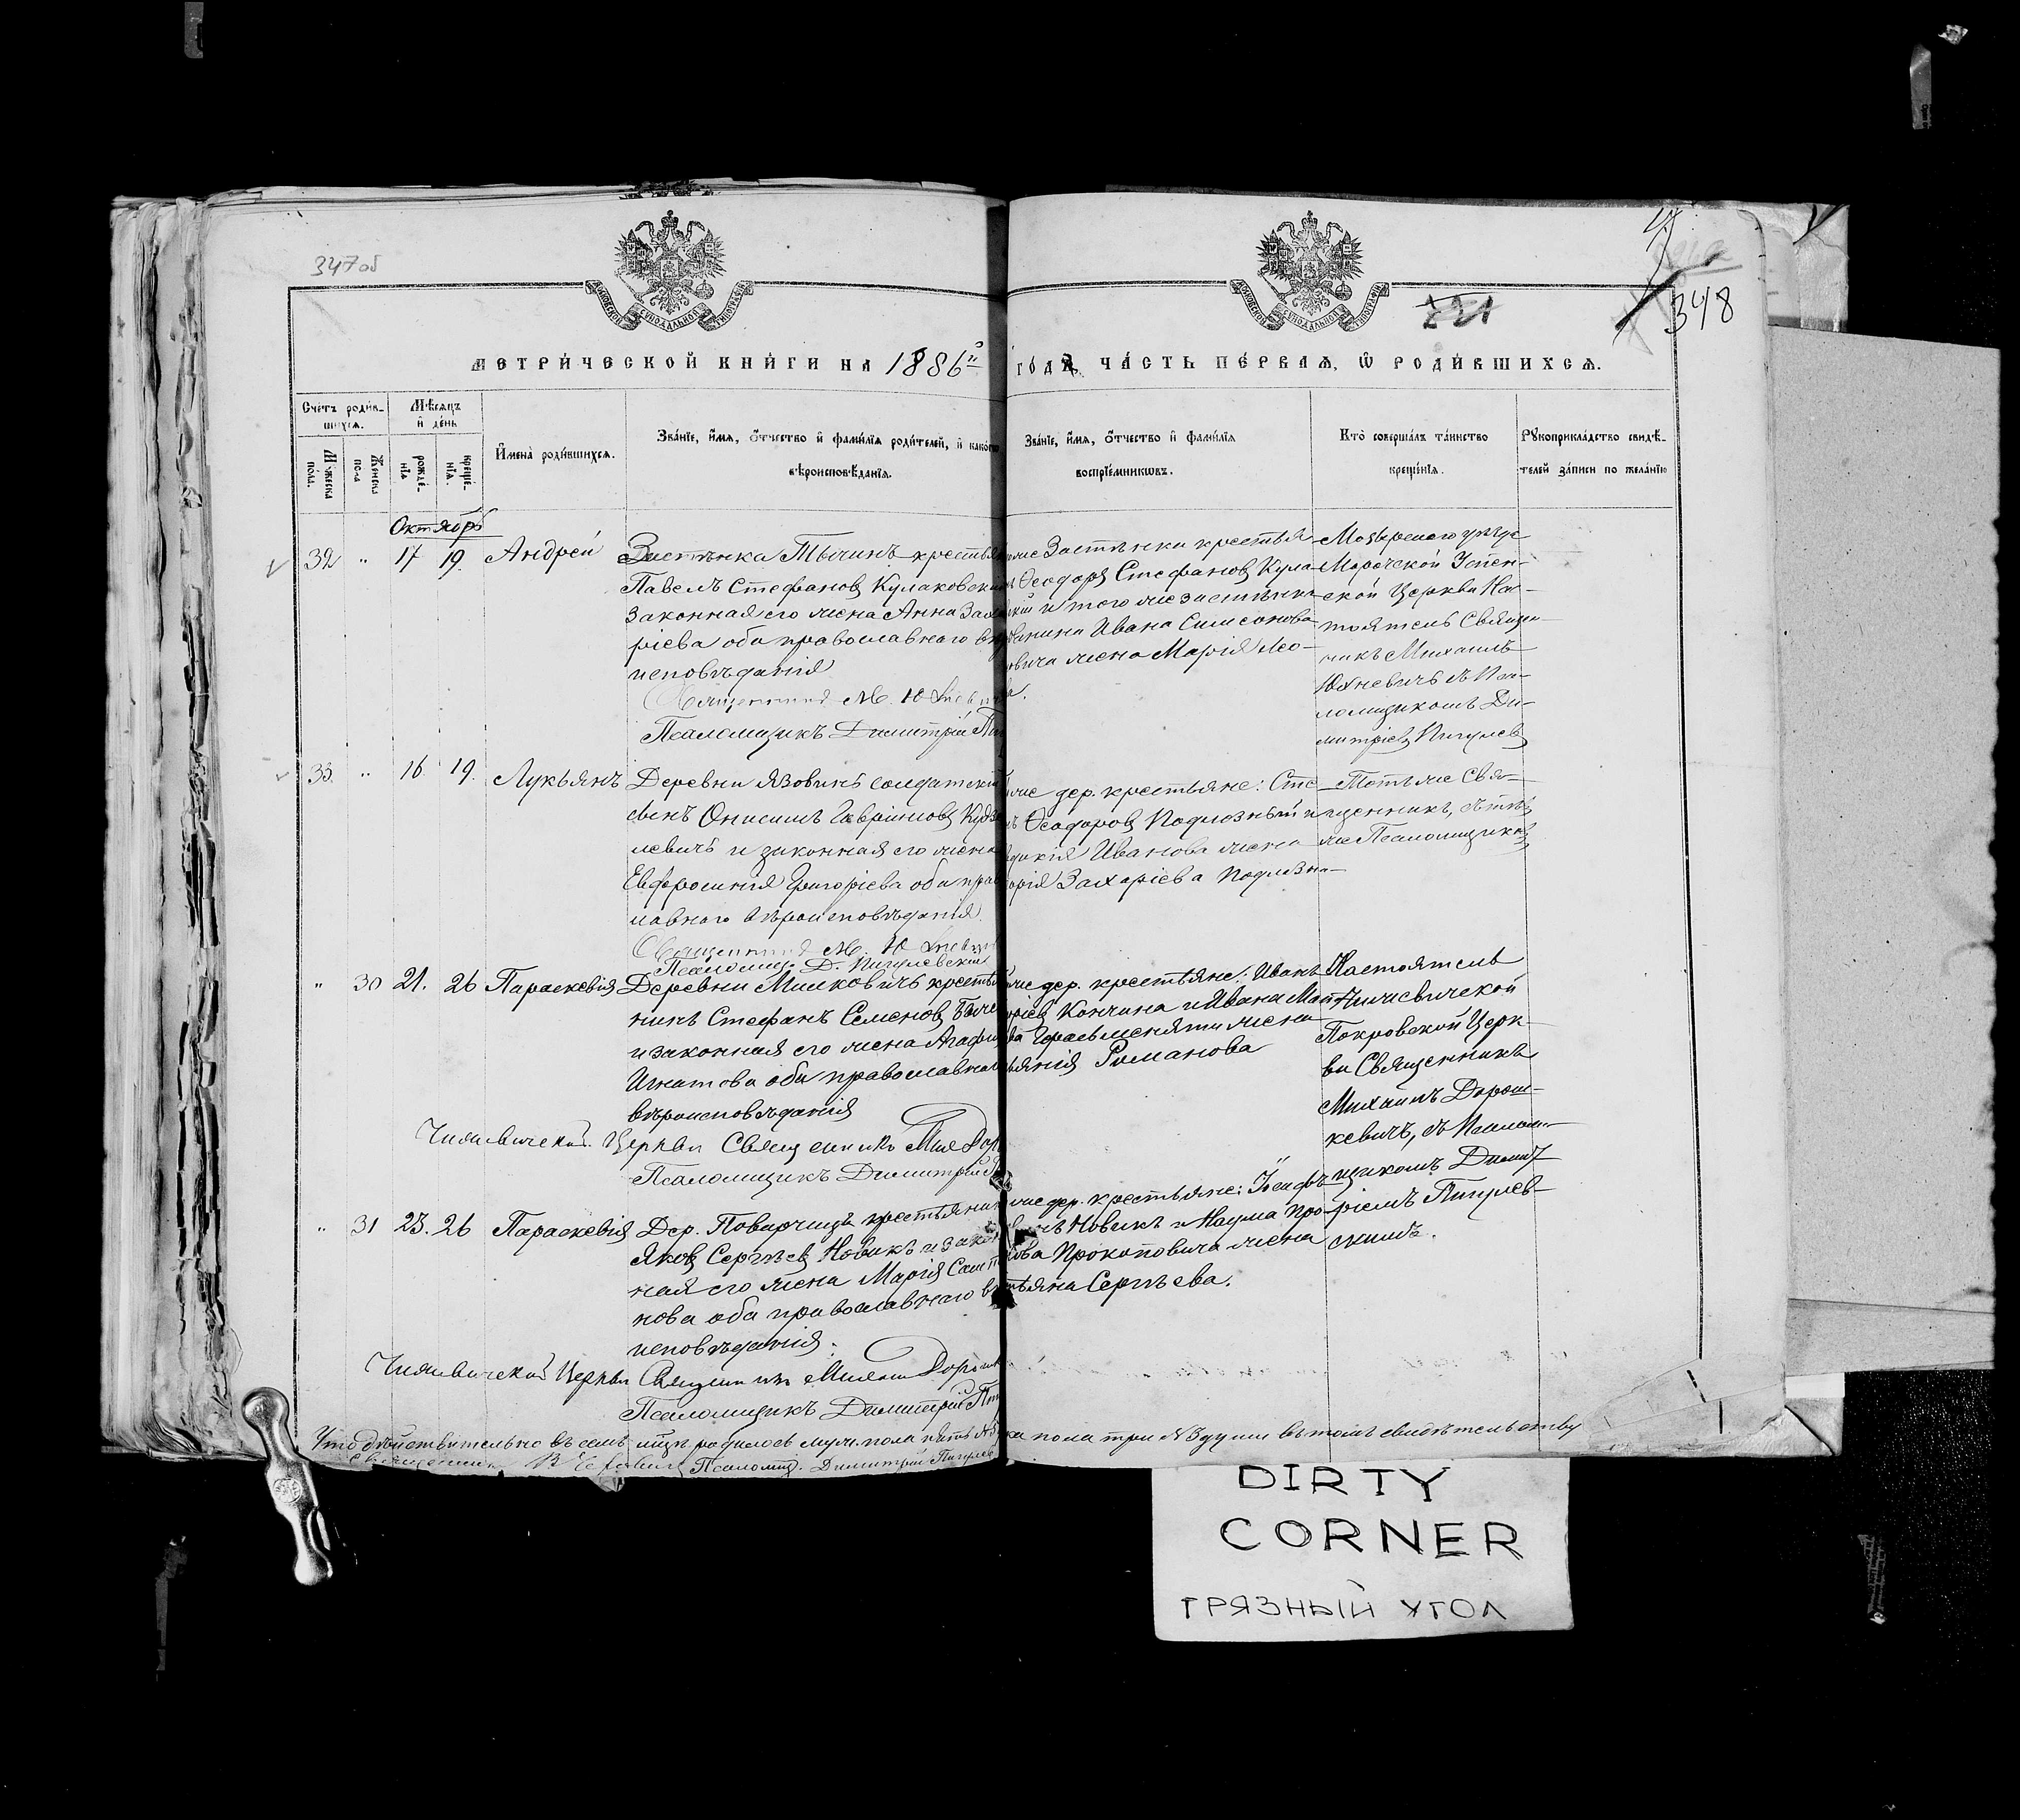 347об
348
МЕТРИ́ЧЕСКОЙ КНИ́ГИ НА 1886й
ГО́ДА, ЧА́СТЬ ПЕ́РВАЯ, Ѡ РОДИ́ВШИХСЯ.
Счетъ роди́в-
шихся.
Мѣсяцъ
и҆ де́нь
Мꙋжеска
по́ла.
Женска
пола
рожде́-
нїѧ
креще́-
нїѧ.
И҆мена̀ роди́вшихся.
Зва́нїе, и҆́мѧ, ѻ҆́тчество и҆ фами́лїѧ роди́телей, и҆ како́гѡ
вѣроисповѣ́данїѧ.
Зва́нїе, и҆́мѧ, ѻ҆́тчество и҆ фами́лїѧ
воспрїе́мникѡвъ.
Кто̀ соверша́лъ та́инство
креще́нїѧ.
Рꙋкоприкла́дство свидѣ́-
телей за́писи по жела́нїю
Октябрь
32 " 17 19. Андрей
Застѣнка Тычинъ крестья
Павелъ Стефановъ Кулаковскій
законная его жена Анна Заха
ріева оба православнаго вѣ
исповѣданія
Священникъ М. Юхневи
Псаломщикъ Димитрій Пи
же Застѣнка крестья-
Ѳеодоръ Стефановъ Кула-
кій и того же застѣнка
Ивана Симеонова
овича жена Марія Лео-
ва.
Мозырскаго уѣзда
Морочской Успен-
ской Церкви На-
стоятель Священ
никъ Михаилъ
Юхневичъ съ Пса-
ломщикомъ Ди-
митріемъ Пигулев
33. " 16 19. Лукьянъ
Деревни Язовинъ солдатскій
сынъ Онисимъ Гавріиловъ
левичъ и законная его жена
Евфросинія Григоріева оба прав
лавнаго вѣроисповѣданія.
Священникъ М. Юхневи
Псаломщ. Д. Пигулевскій
же дер. крестьяне: Сте-
Ѳеодоровъ Подлозный и
докія Иванова жена
Захаріева Подлозна-
Тотъ же Свя-
щенникъ, съ тѣмъ
же Псаломщикомъ
" 30 21. 26 Параскевія
Деревни Милковичъ крестья
нинъ Стефанъ Семеновъ
и законная его жена Агафія
Игнатова оба православнаго
вѣроисповѣданія
Церкви Священникъ Мих Дор
Псаломщикъ Димитрій
же дер. крестьяне: Иванъ
Кончина и Ивана Мат-
ва жена
Романова
Настоятель
Покровской Церк-
ви Священникъ
Михаилъ Дорош-
кевичъ, съ Псалом-
щикомъ Димит-
ріемъ Пигулев-
скимъ.
" 31 23. 26 Параскевія
Дер. Поварчицы крестьянин
Яковъ Сергѣевъ Новикъ и закон
ная его жена Марія Самой
нова оба православнаго вѣ
исповѣданія.
Церкви Священникъ Михаилъ Дорошк
Псаломщикъ Димитрій Пи
же дер. крестьяне: Іосифъ
Новикъ и Наума Про-
кова Прокоповича жена
тьяна Сергѣева.
Что дѣйствительно въ семъ м-цѣ родилось муж. пола пять №5 ка пола три №3 души въ томъ свидѣтельству
Священникъ Псаломщ. Димитрій Пигулев
DIRTY
CORNER
ГРЯЗНЫЙ УГОЛ